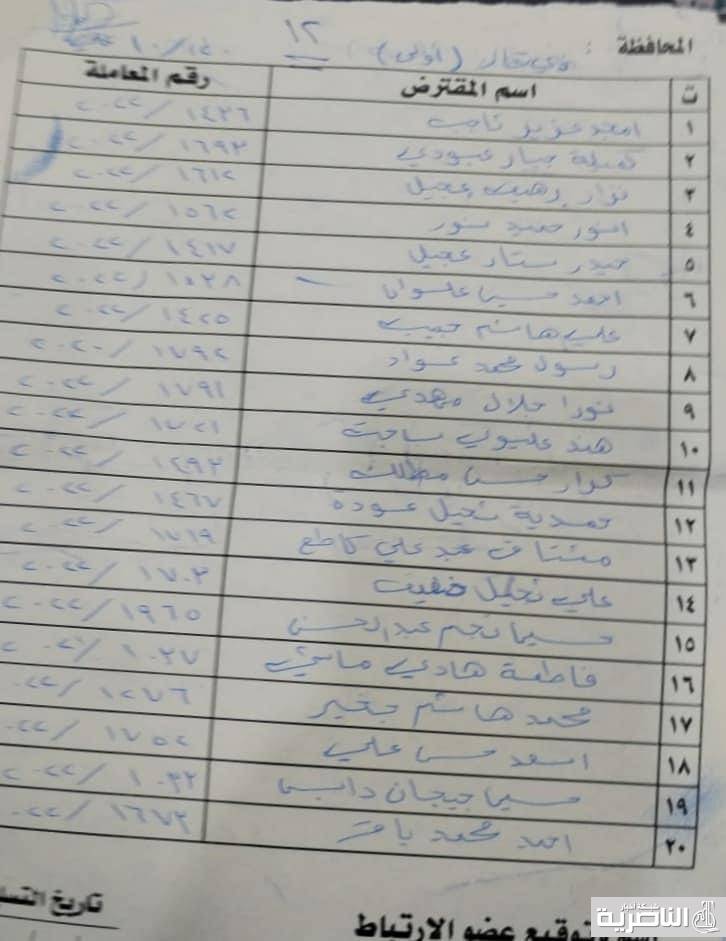 ١٢
المحافظة : ذي قار (اولى)
ت اسم المقترض رقم المعاملة
١ امجد عزيز ١٤٣٦ / ٢٠٢٢
٢ جميلة جبار عبودي ١٦٩٣ / ٢٠٢٢
٣ نوار عجيل ١٦١٢ / ٢٠٢٢
٤ انور حميد ١٥٦٢ / ٢٠٢٢
٥ حيدر ستار عجيل ١٤١٧ / ٢٠٢٢
٦ احمد حسين علوان ١٥٢٨ / ٢٠٢٢
٧ علي هاشم حبيب ١٤٢٥ / ٢٠٢٢
٨ رسول محمد عواد ١٧٩٢ / ٢٠٢٠
٩ نورا جلال مهدي ١٧٩١ / ٢٠٢٢
١٠ هند عليوي ساجت ١٧٢١ / ٢٠٢٢
١١ كرار حسن مطلك ١٢٩٣ / ٢٠٢٢
١٢ حمدية عوده ١٤٦٧ / ٢٠٢٢
١٣ مشتاق عبد علي كاطع ١٧١٩ / ٢٠٢٢
١٤ علي ١٧٠٣ / ٢٠٢٢
١٥ حسين نجم عبدالحسن ١٩٦٥ / ٢٠٢٢
١٦ فاطمة هادي ١٠٢٧
١٧ محمد هاشم جخير ١٢٧٦ / ٢٠٢٢
١٨ اسعد حسن علي ١٧٥٢
١٩ حسين جيجان ١٠٣٢ / ٢٠٢٢
٢٠ احمد محمد باقر ١٦٧٣
توقيع عضو الارتباط
شبكة اخبار
الناصرية